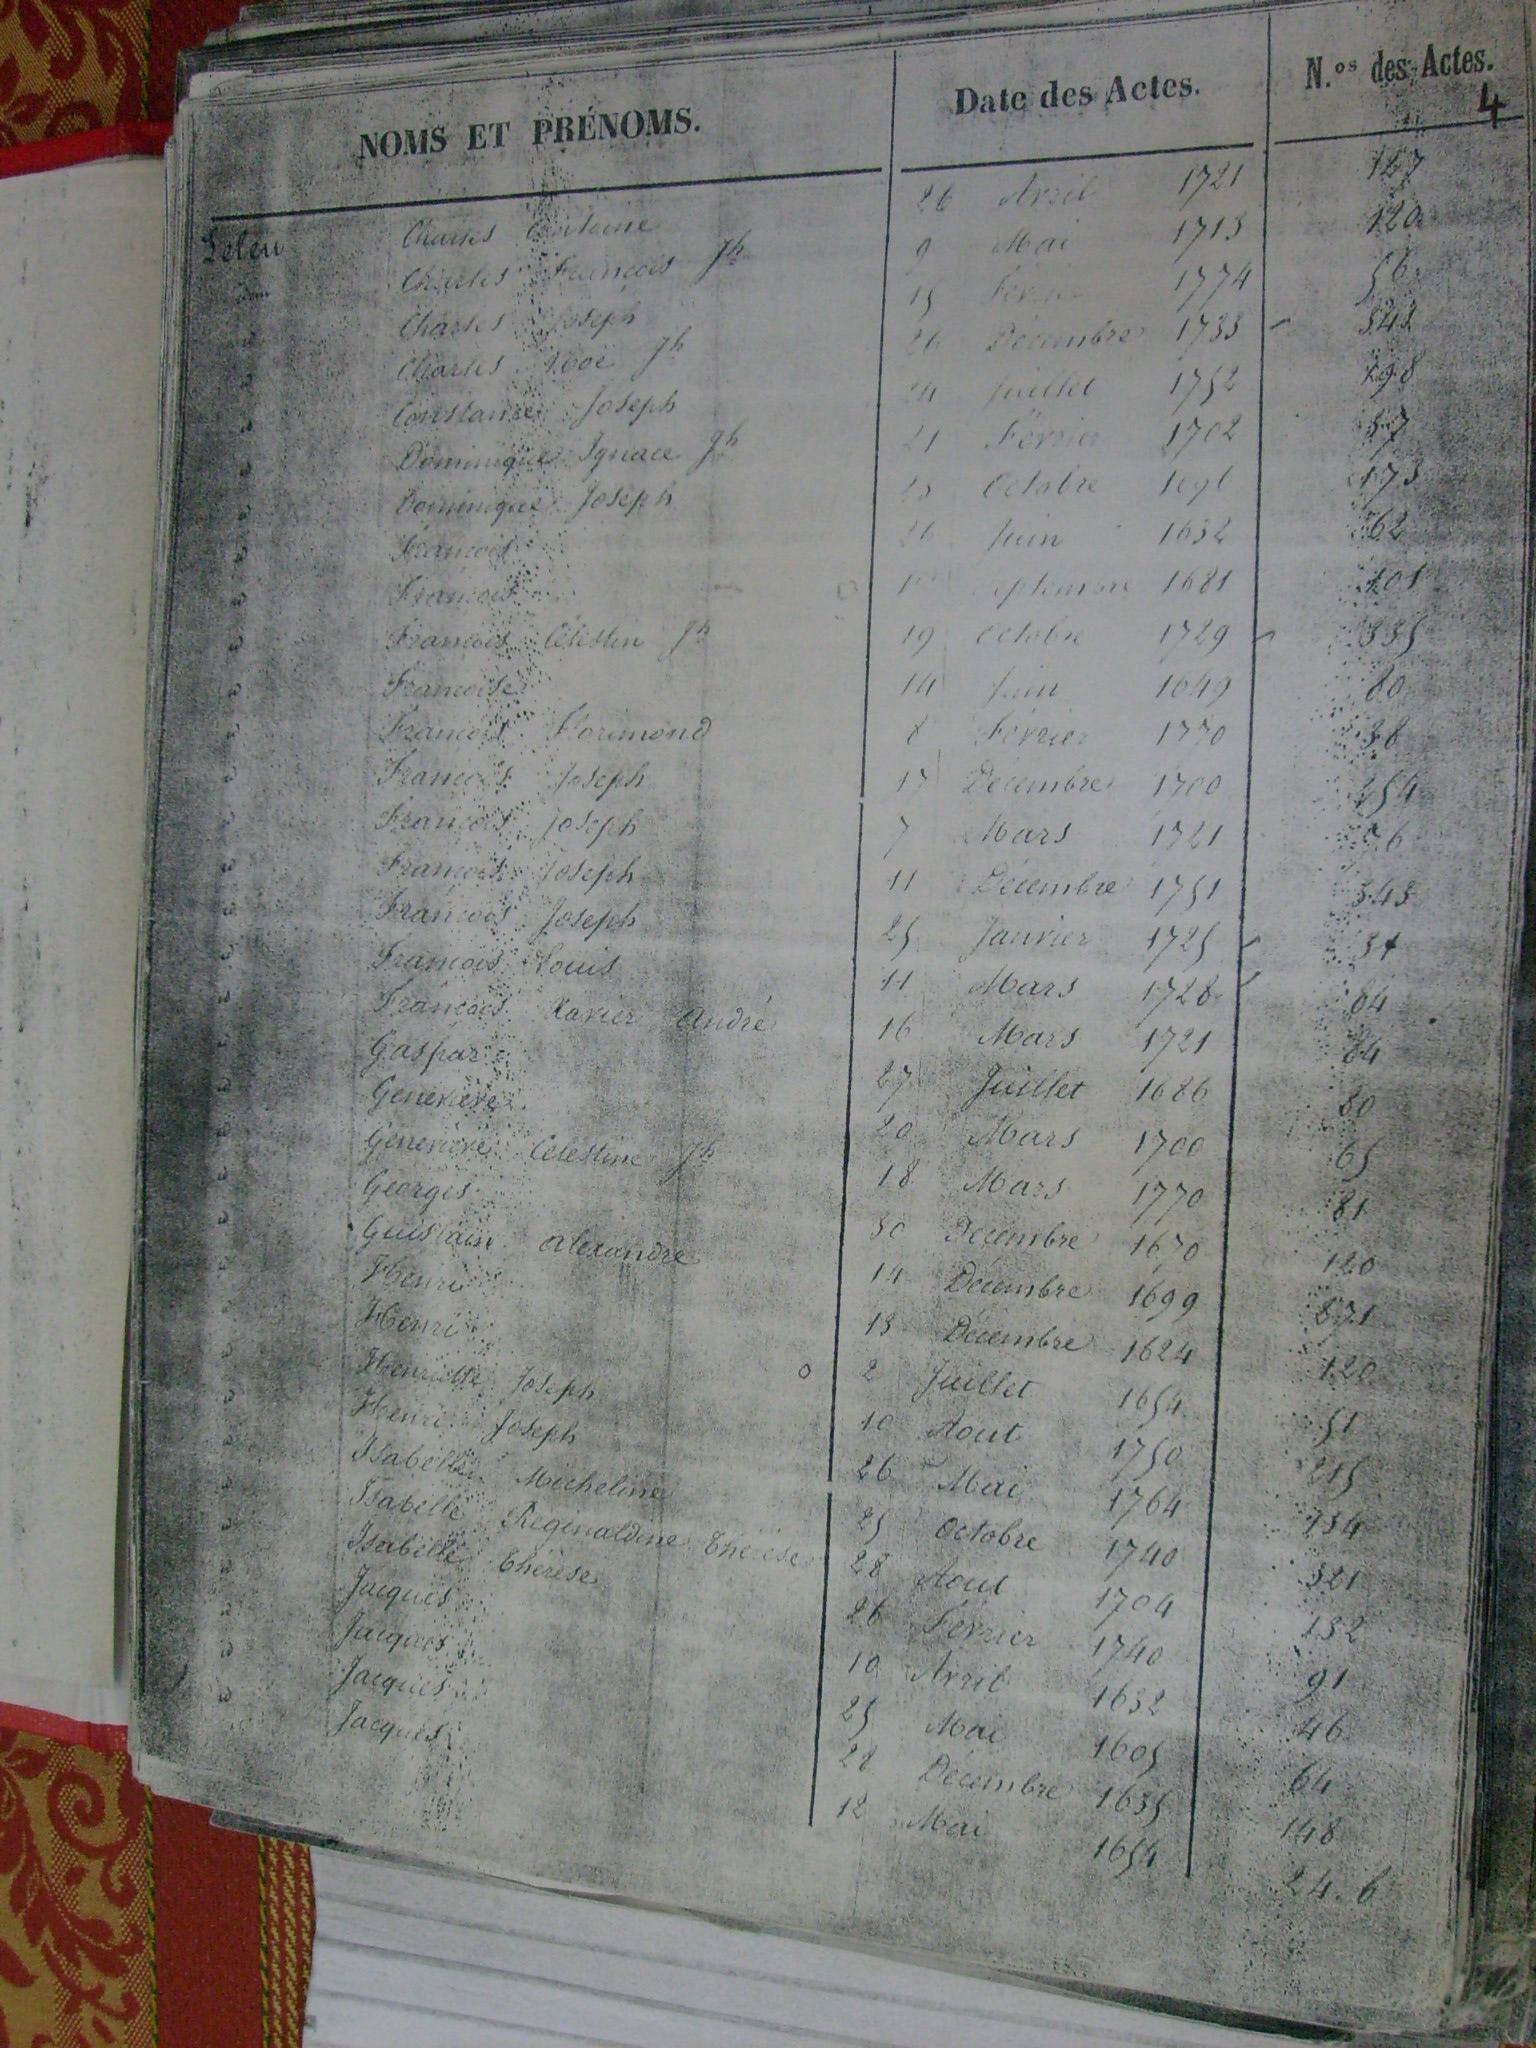 NOMS ET PRÉNOMS. Date des Actes. N.os des Actes.
4
Leleu Charles Antoine 26 Avril 1721 147
Charles François Jh 9 Mai 1713 120
" Charles Joseph 15 Février 1774 56
" Charles Jh 26 Décembre 1733 343
" Constance Joseph 24 Juillet 1752 198
" Dominique Ignace Jh 21 Février 1702 37
" Dominique Joseph 23 Octobre 1696 173
" François 26 Juin 1632 62
" François Septembre 1681 101
" François Célestin Jh 19 Octobre 1729 335
" Françoise 14 Juin 1649 80
" François Florimond 8 Février 1770 38
" François Joseph 17 Décembre 1700 254
" François Joseph 7 Mars 1721 76
" François Joseph 11 Décembre 1751 343
" François Joseph 25 Janvier 1725 31
" François Louis 11 Mars 1728 84
" François Xavier André 16 Mars 1721 84
" Gaspar 27 Juillet 1686 80
" Geneviève 20 Mars 1700 65
" Geneviève Célestine Jh 18 Mars 1770 81
" Georges 30 Décembre 1670 120
" Guislain Alexandre 14 Décembre 1699 271
" Henri 13 Décembre 1624 120
" Henri 2 Juillet 1654 51
" Henriette Joseph 10 Aout 1750 215
" Henri Joseph 26 Mai 1764 134
" Isabelle Micheline 25 Octobre 1740 321
" Isabelle Reginaldine Thérèse 28 Aout 1704 132
" Isabelle Thérèse 26 Février 1740 91
" Jacques 10 Avril 1632 46
" Jacques 25 Mai 1605 64
" Jacques 28 Décembre 1635 148
" Jacques 12 Mai 1654 24. 6